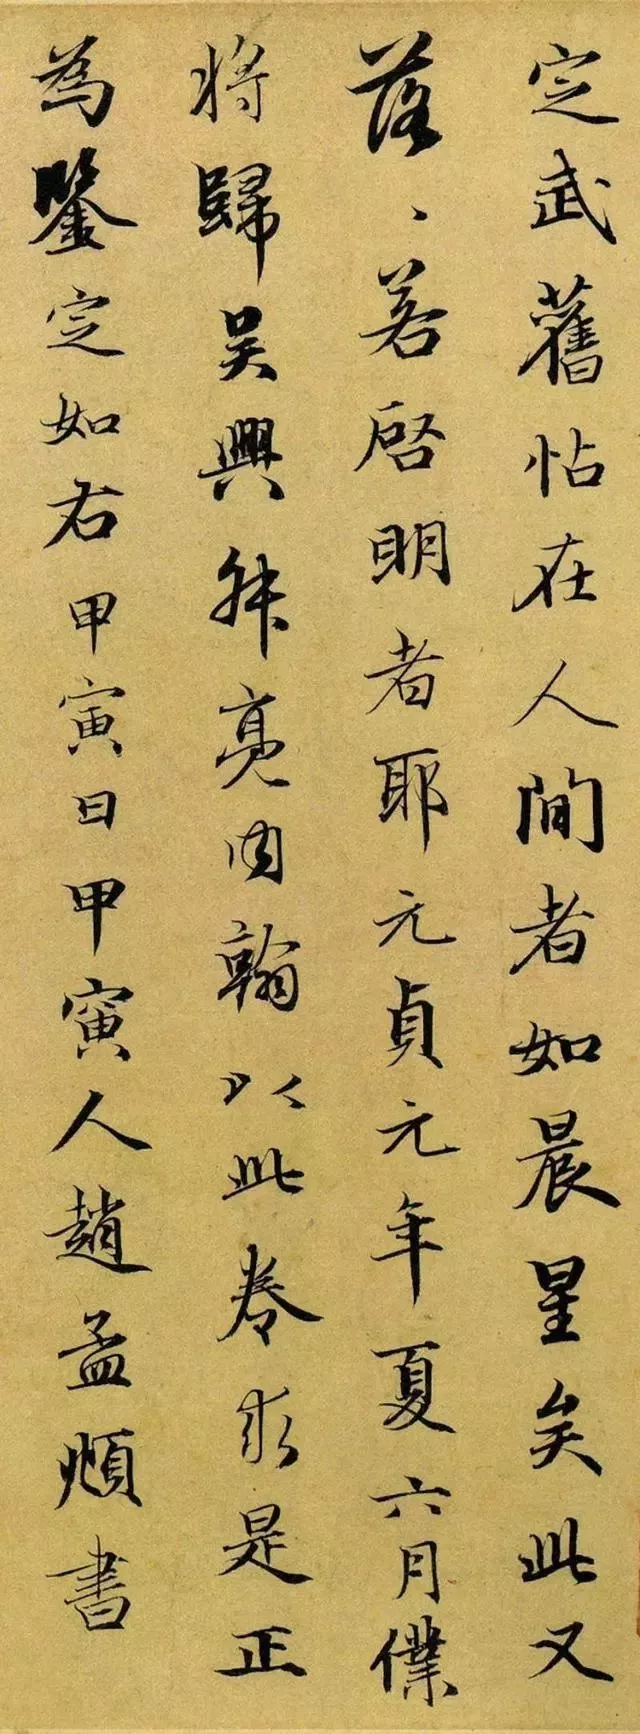 定武舊帖在人間者如晨星矣此又
落〻若啓明者耶元貞元年夏六月僕
將歸吳興叔亮内翰以此卷求是正
為鑒定如右甲寅日甲寅人趙孟頫書